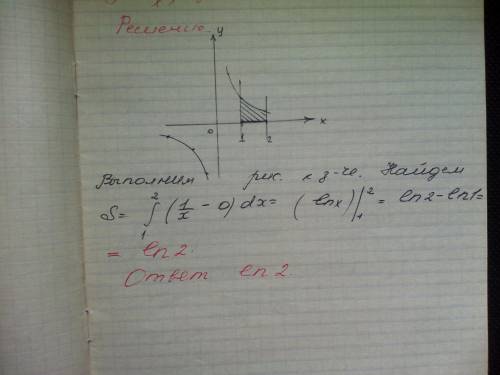 Решение
y
0 1 2 x
Выполним рис. к з-че. Найдем
S= ∫₁² (1/x - 0) dx = (ln x)|₁² = ln2 - ln1 =
= ln 2.
Ответ ln 2.